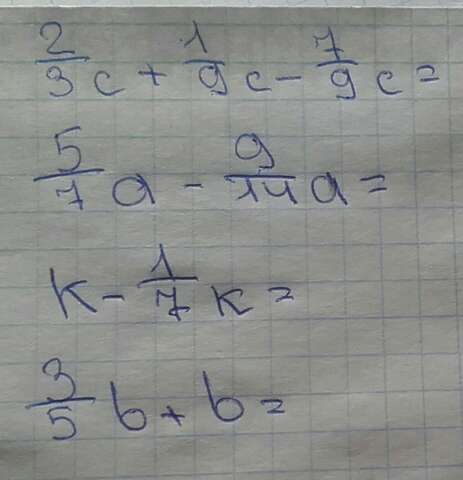 2/3 c + 1/9 c - 7/9 c =
5/7 a - 9/14 a =
k - 1/7 k =
3/5 b + b =